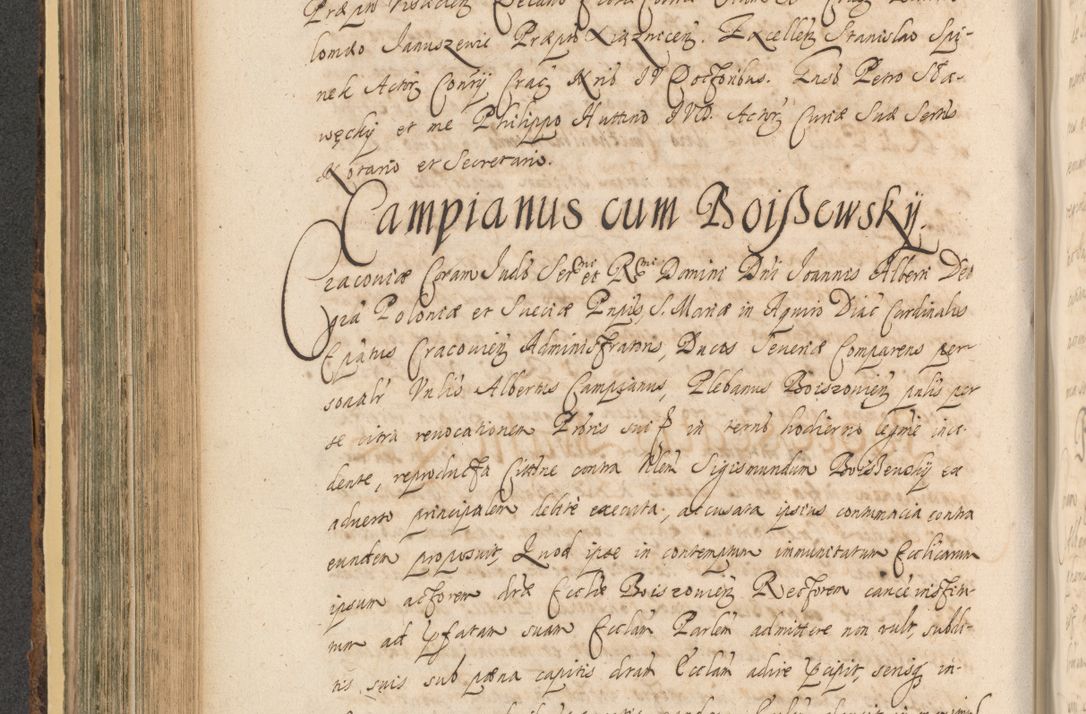 lomæo Januszewic Præpto Excellen Stanislao Spi-
nek Actor Conrÿ Crac Nrib IV Doctoribus. Petro Sła-
węckÿ et me Philippo Huttino IVD. Actor Curiæ Suæ Sertis
Notario et Secretario.
Campianus cum Boißewskÿ.
Cracoviæ Coram Indo Sermi et Rmi Domini Dni Joannis Alberti Dei
gra Poloniæ et Sueciæ Pnpis, S. Mariæ in Aquiro Diac Cardinalis
Epatus Cracovien Administratoris, Ducis Severiæ Comparens per-
sonalr Vnlis Albertus Campianus, Plebanus Boiszovien pnlis per
se citra revocationem Proris sui in termo hodierno legme inci-
dente, reproducta Cittione contra Nlem Sigismundum Boißensky ex
adverso principalem debite executa, accusata ipsius contumacia contra
eundem proposuit, Quod ipse in contemptum immunitatum Ecclicarum
ipsum actorem dctæ Ecclæ Boiszovien Rectorem cance institu-
tum ad pfatam suam Ecclam Parlem admittere non vult, subdi-
tis suis sub pæna capitis dctam Ecclam adire pcipit, in-